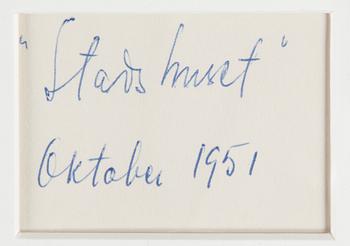 "Stadshuset"
Oktober 1951